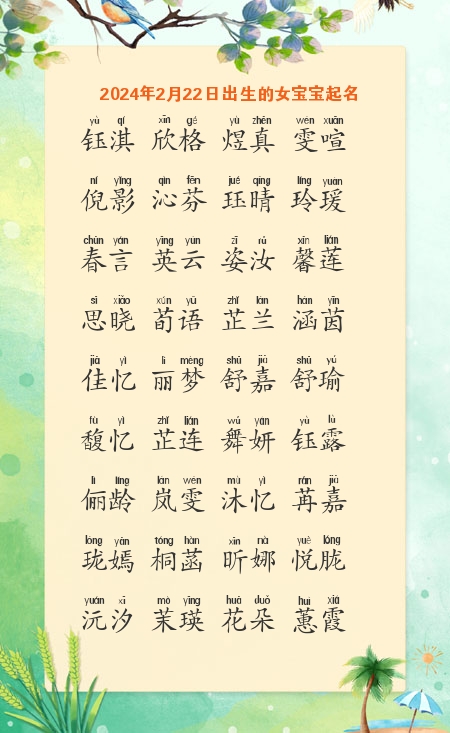 2024年2月22日出生的女宝宝起名
yù qí xīn gé yù zhēn wén xuān
钰淇 欣格 煜真 雯喧
ní yǐng qìn fēn jué qíng líng yuàn
倪影 沁芬 珏晴 玲瑗
chūn yán yīng yún zī rǔ xīn lián
春言 英云 姿汝 馨莲
sī xiǎo xún yǔ zhǐ lán hán yīn
思晓 荀语 芷兰 涵茵
jiā yì lì mèng shū jiā shū yú
佳忆 丽梦 舒嘉 舒瑜
fù yì zhǐ lián wǔ yán yù lù
馥忆 芷连 舞妍 钰露
lì líng lán wén mù yì rǎn jiā
俪龄 岚雯 沐忆 苒嘉
lóng yān tóng hàn xīn nà yuè lóng
珑嫣 桐菡 昕娜 悦胧
yuán xī mò yīng huā duǒ huì xiá
沅汐 茉瑛 花朵 蕙霞